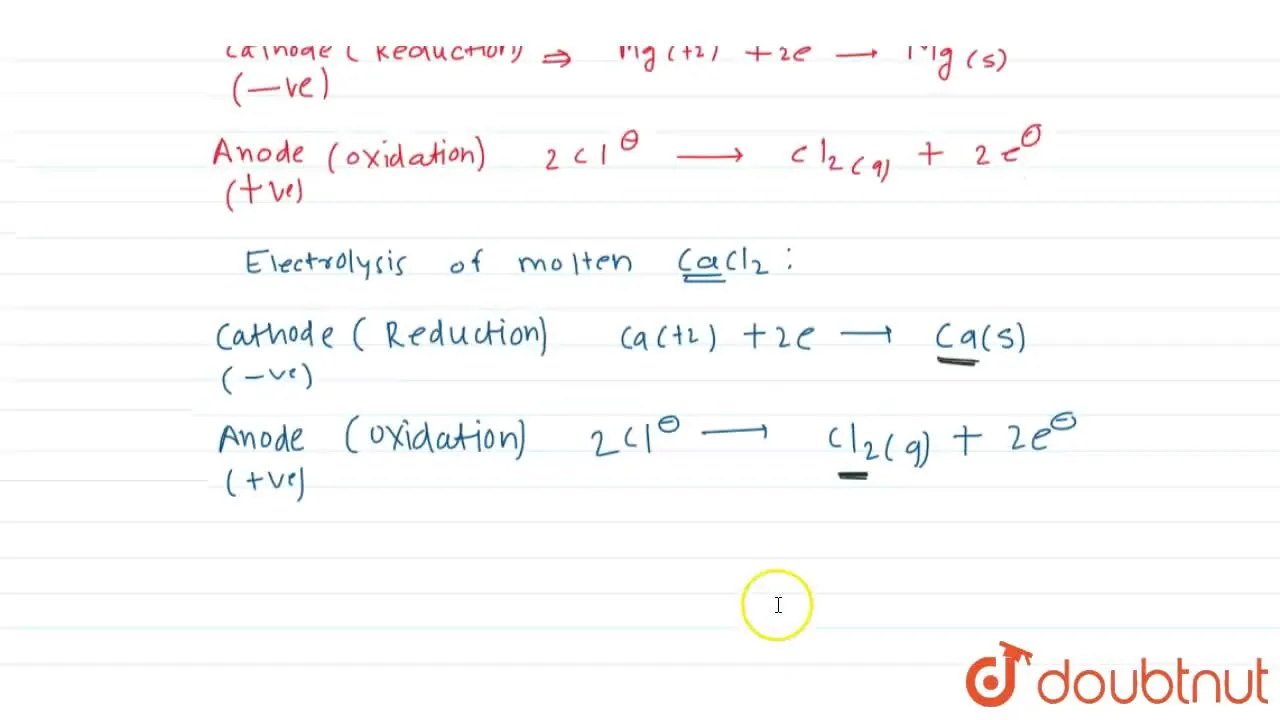 Cathode ( Reduction) ⇒ Mg(+2) + 2e → Mg(s)
(-ve)
Anode (oxidation) 2Cl⊖ → Cl2(g) + 2e⊖
(+ve)
Electrolysis of molten CaCl2 :
Cathode ( Reduction) Ca(+2) + 2e → Ca(s)
(-ve)
Anode (oxidation) 2Cl⊖ → Cl2(g) + 2e⊖
(+ve)
doubtnut